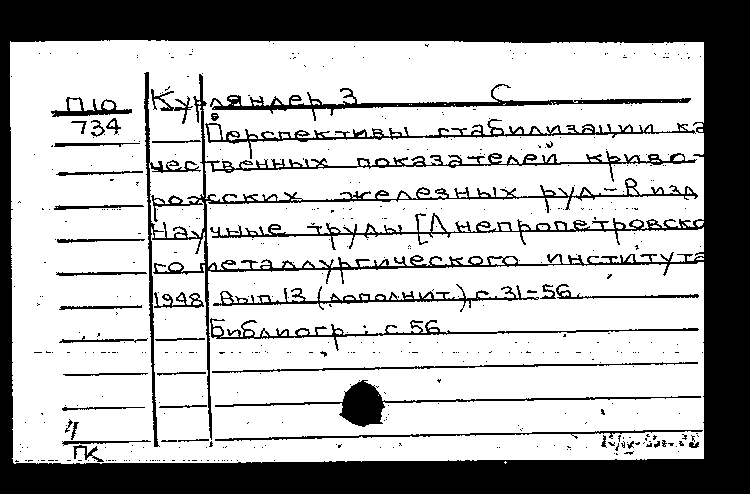 П10 Курляндер, З С
734 Перспективы стабилизации ка
чественных показателей криво-
рожских железных руд. - В изд
Научные труды [Днепропетровско
го металлургического института
1948 Вып. 13 (дополнит.), с. 31-56.
Библиогр: с 56.
ПК